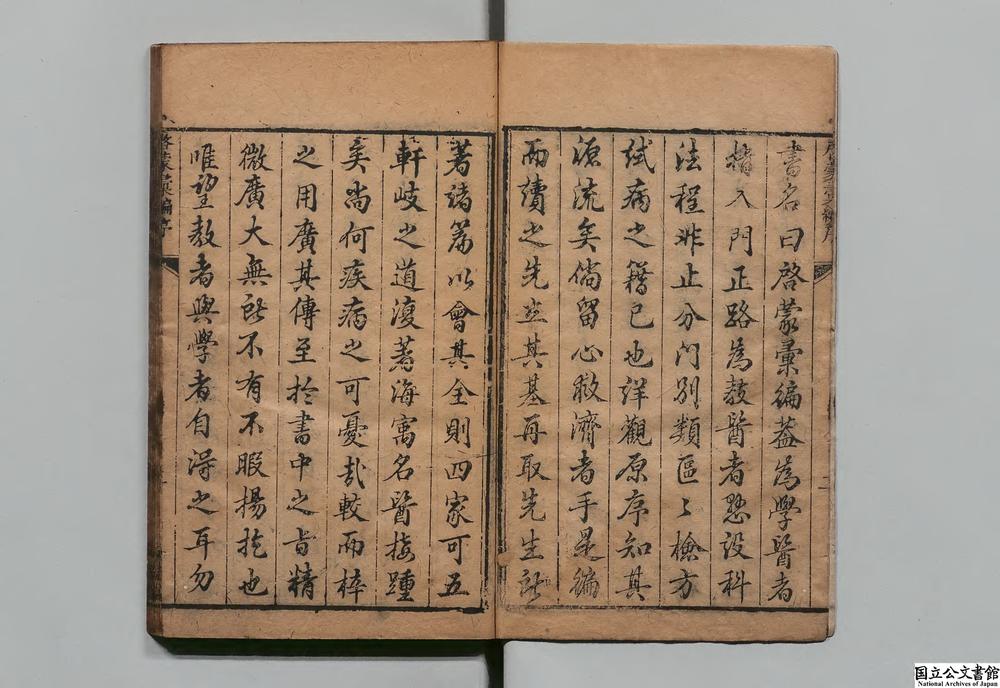 書名曰啓蒙彙編葢為學醫者
指入門正路為教醫者懸設科
法程非止分門別類區〻檢方
試病之籍已也詳觀原序知其
源流矣倘留心救濟者手是編
而讀之先立其基再取先生所
著諸篇以會其全則四家可五
軒岐之道復著海寓名醫接踵
矣尚何疾病之可憂哉較而梓
之用廣其傳至於書中之旨精
微廣大無所不有不暇揚扢也
唯望教者與學者自得之耳勿
啓蒙彙編序
国立公文書館
National Archives of Japan